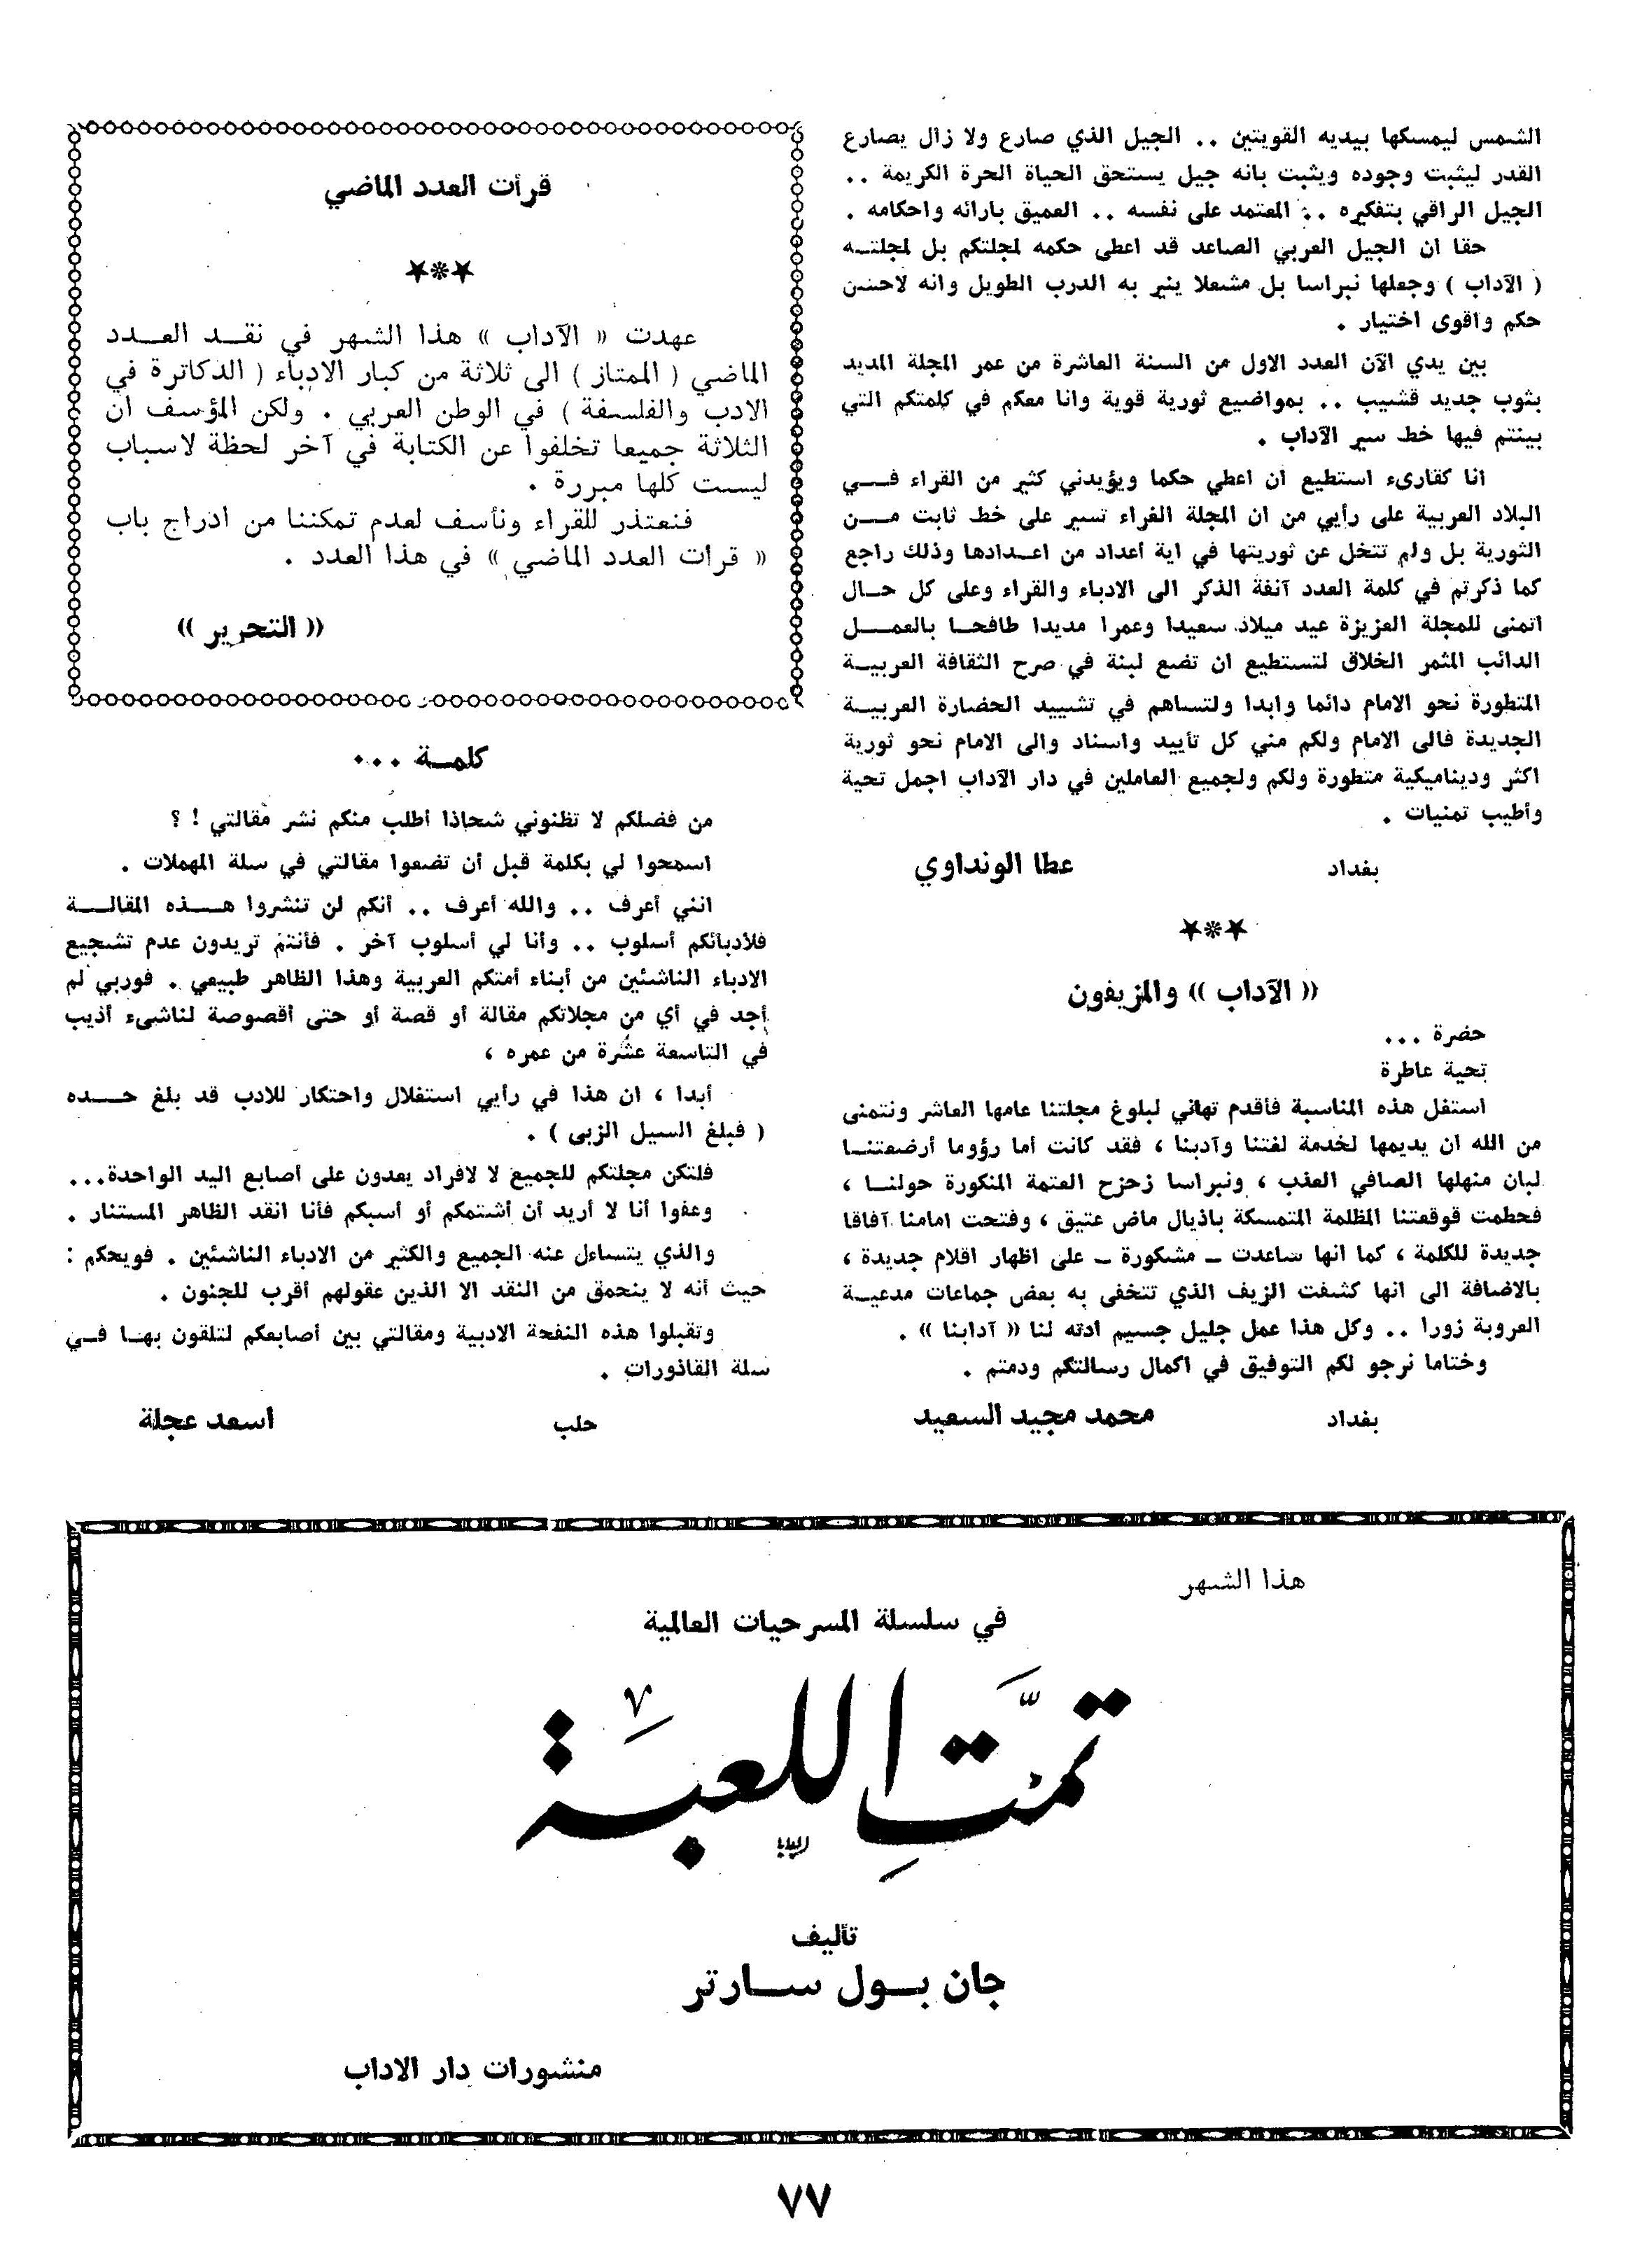 الشمس ليمسكها بيديه القويتين .. الجيل الذي صارع ولا زال يصارع
القدر ليثبت وجوده ويثبت بانه جيل يستحق الحياة الحرة الكريمة ..
الجيل الراقي بتفكيره .. المعتمد على نفسه .. العميق بارائه واحكامه .
حقا ان الجيل العربي الصاعد قد اعطى حكمه لمجلتكم بل لمجلتـه
( الآداب ) وجعلها نبراسا بل مشعلا ينير به الدرب الطويل وانه لاحسن
حكم واقوى اختيار .
بين يدي الآن العدد الاول من السنة العاشرة من عمر المجلة المديد
بثوب جديد قشيب .. بمواضيع ثورية قوية وانا معكم في كلمتكم التي
بينتم فيها خط سير الآداب .
انا كقارىء استطيع ان اعطي حكما ويؤيدني كثير من القراء فـــي
البلاد العربية على رأيي من ان المجلة الغراء تسير على خط ثابت مـــن
الثورية بل ولم تتخل عن ثوريتها في اية أعداد من اعـدادها وذلك راجع
كما ذكرتم في كلمة العدد آنفة الذكر الى الادباء والقراء وعلى كل حـال
اتمنى للمجلة العزيزة عيد ميلاد سعيدا وعمرا مديدا طافحـا بالعمــل
الدائب المثمر الخلاق لتستطيع ان تضع لبنة في صرح الثقافة العربيـة
المتطورة نحو الامام دائما وابدا ولتساهم في تشييد الحضارة العربيـة
الجديدة فالى الامام ولكم مني كل تأييد واسناد والى الامام نحو ثورية
اكثر وديناميكية متطورة ولكم ولجميع العاملين في دار الآداب اجمل تحية
وأطيب تمنيات .
بغداد عطا الونداوي
« الآداب » والمزيفون
حضرة ...
تحية عاطرة
استغل هذه المناسبة فأقدم تهاني لبلوغ مجلتنا عامها العاشر ونتمنى
من الله ان يديمها لخدمة لغتنا وآدبنا ، فقد كانت أما رؤوما أرضعتنـا
لبان منهلها الصافي العذب ، ونبراسا زحزح العتمة المنكورة حولنـا ،
فحطمت قوقعتنا المظلمة المتمسكة باذيال ماض عتيق ، وفتحت امامنا آفاقا
جديدة للكلمة ، كما انها ساعدت ـ مشكورة ـ على اظهار اقلام جديدة ،
بالاضافة الى انها كشفت الزيف الذي تتخفى به بعض جماعات مدعيـة
العروبة زورا .. وكل هذا عمل جليل جسيم ادته لنا « آدابنا » .
وختاما نرجو لكم التوفيق في اكمال رسالتكم ودمتم .
بغداد محمد مجيد السعيد
قرأت العدد الماضي
عهدت « الآداب » هذا الشهر في نقـد العـدد
الماضي ( الممتاز ) الى ثلاثة من كبار الادباء ( الدكاترة في
الادب والفلسفة ) في الوطن العربي . ولكن المؤسف ان
الثلاثة جميعا تخلفوا عن الكتابة في آخر لحظة لاسباب
ليست كلها مبررة .
فنعتذر للقراء ونأسف لعدم تمكننا من ادراج باب
« قرات العدد الماضي » في هذا العدد .
« التحرير »
كلمـة ...
من فضلكم لا تظنوني شحاذا أطلب منكم نشر مقالتي ! ؟
اسمحوا لي بكلمة قبل أن تضعوا مقالتي في سلة المهملات .
انني أعرف .. والله أعرف .. أنكم لن تنشروا هـــذه المقالــة
فلأدبائكم أسلوب .. وأنا لي أسلوب آخر . فأنتم تريدون عدم تشجيع
الادباء الناشئين من أبناء أمتكم العربية وهذا الظاهر طبيعي . فوربي لم
أجد في أي من مجلاتكم مقالة أو قصة أو حتى أقصوصة لناشىء أديب
في التاسعة عشرة من عمره ،
أبدا ، ان هذا في رأيي استغلال واحتكار للادب قد بلغ حـــده
( فبلغ السيل الزبى ) .
فلتكن مجلتكم للجميع لا لافراد يعدون على أصابع اليد الواحدة...
وعفوا أنا لا أريد أن أشتمكم أو أسبكم فأنا انقد الظاهر المستنار .
والذي يتساءل عنه الجميع والكثير من الادباء الناشئين . فويحكم :
حيث أنه لا ينحمق من النقد الا الذين عقولهم أقرب للجنون .
وتقبلوا هذه النفحة الادبية ومقالتي بين أصابعكم لتلقون بهـا فـي
سلة القاذورات .
حلب اسعد عجلة
هذا الشهر
في سلسلة المسرحيات العالمية
تمَّتِ اللعبة
تأليف
جان بـول سـارتر
منشورات دار الاداب
٧٧